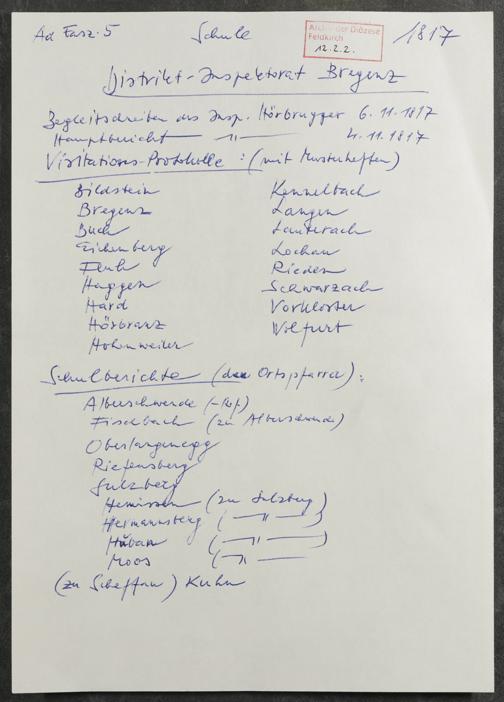 Ad Fasz. 5 Schule 1817
Archiv der Diözese
Feldkirch
12.2.2.
Distrikt-Inspektorat Bregenz
Begleitschreiben des Insp. Hörbrugger 6.11.1817
Hauptbericht — " — 4.11.1817
Visitations-Protokolle: (mit Musterheften)
Bildstein
Bregenz
Buch
Eichenberg
Fluh
Haggen
Hard
Hörbranz
Hohenweiler
Kennelbach
Langen
Lauterach
Lochau
Rieden
Schwarzach
Vorkloster
Wolfurt
Schulberichte (der Ortspfarrer):
Alberschwende
Fischbach (zu Alberschwende)
Oberlangenegg
Riefensberg
Sulzberg
(zu Sulzberg)
Hermannsberg ( — " — )
Huban ( — " — )
Moos ( — " —
(zu Scheffau) Kuhn